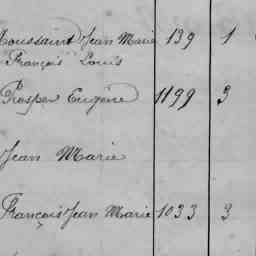 Toussaint Jean Marie 139 1
François Louis
Prosper Eugène 1199 3
Jean Marie
François Jean Marie 1033 3